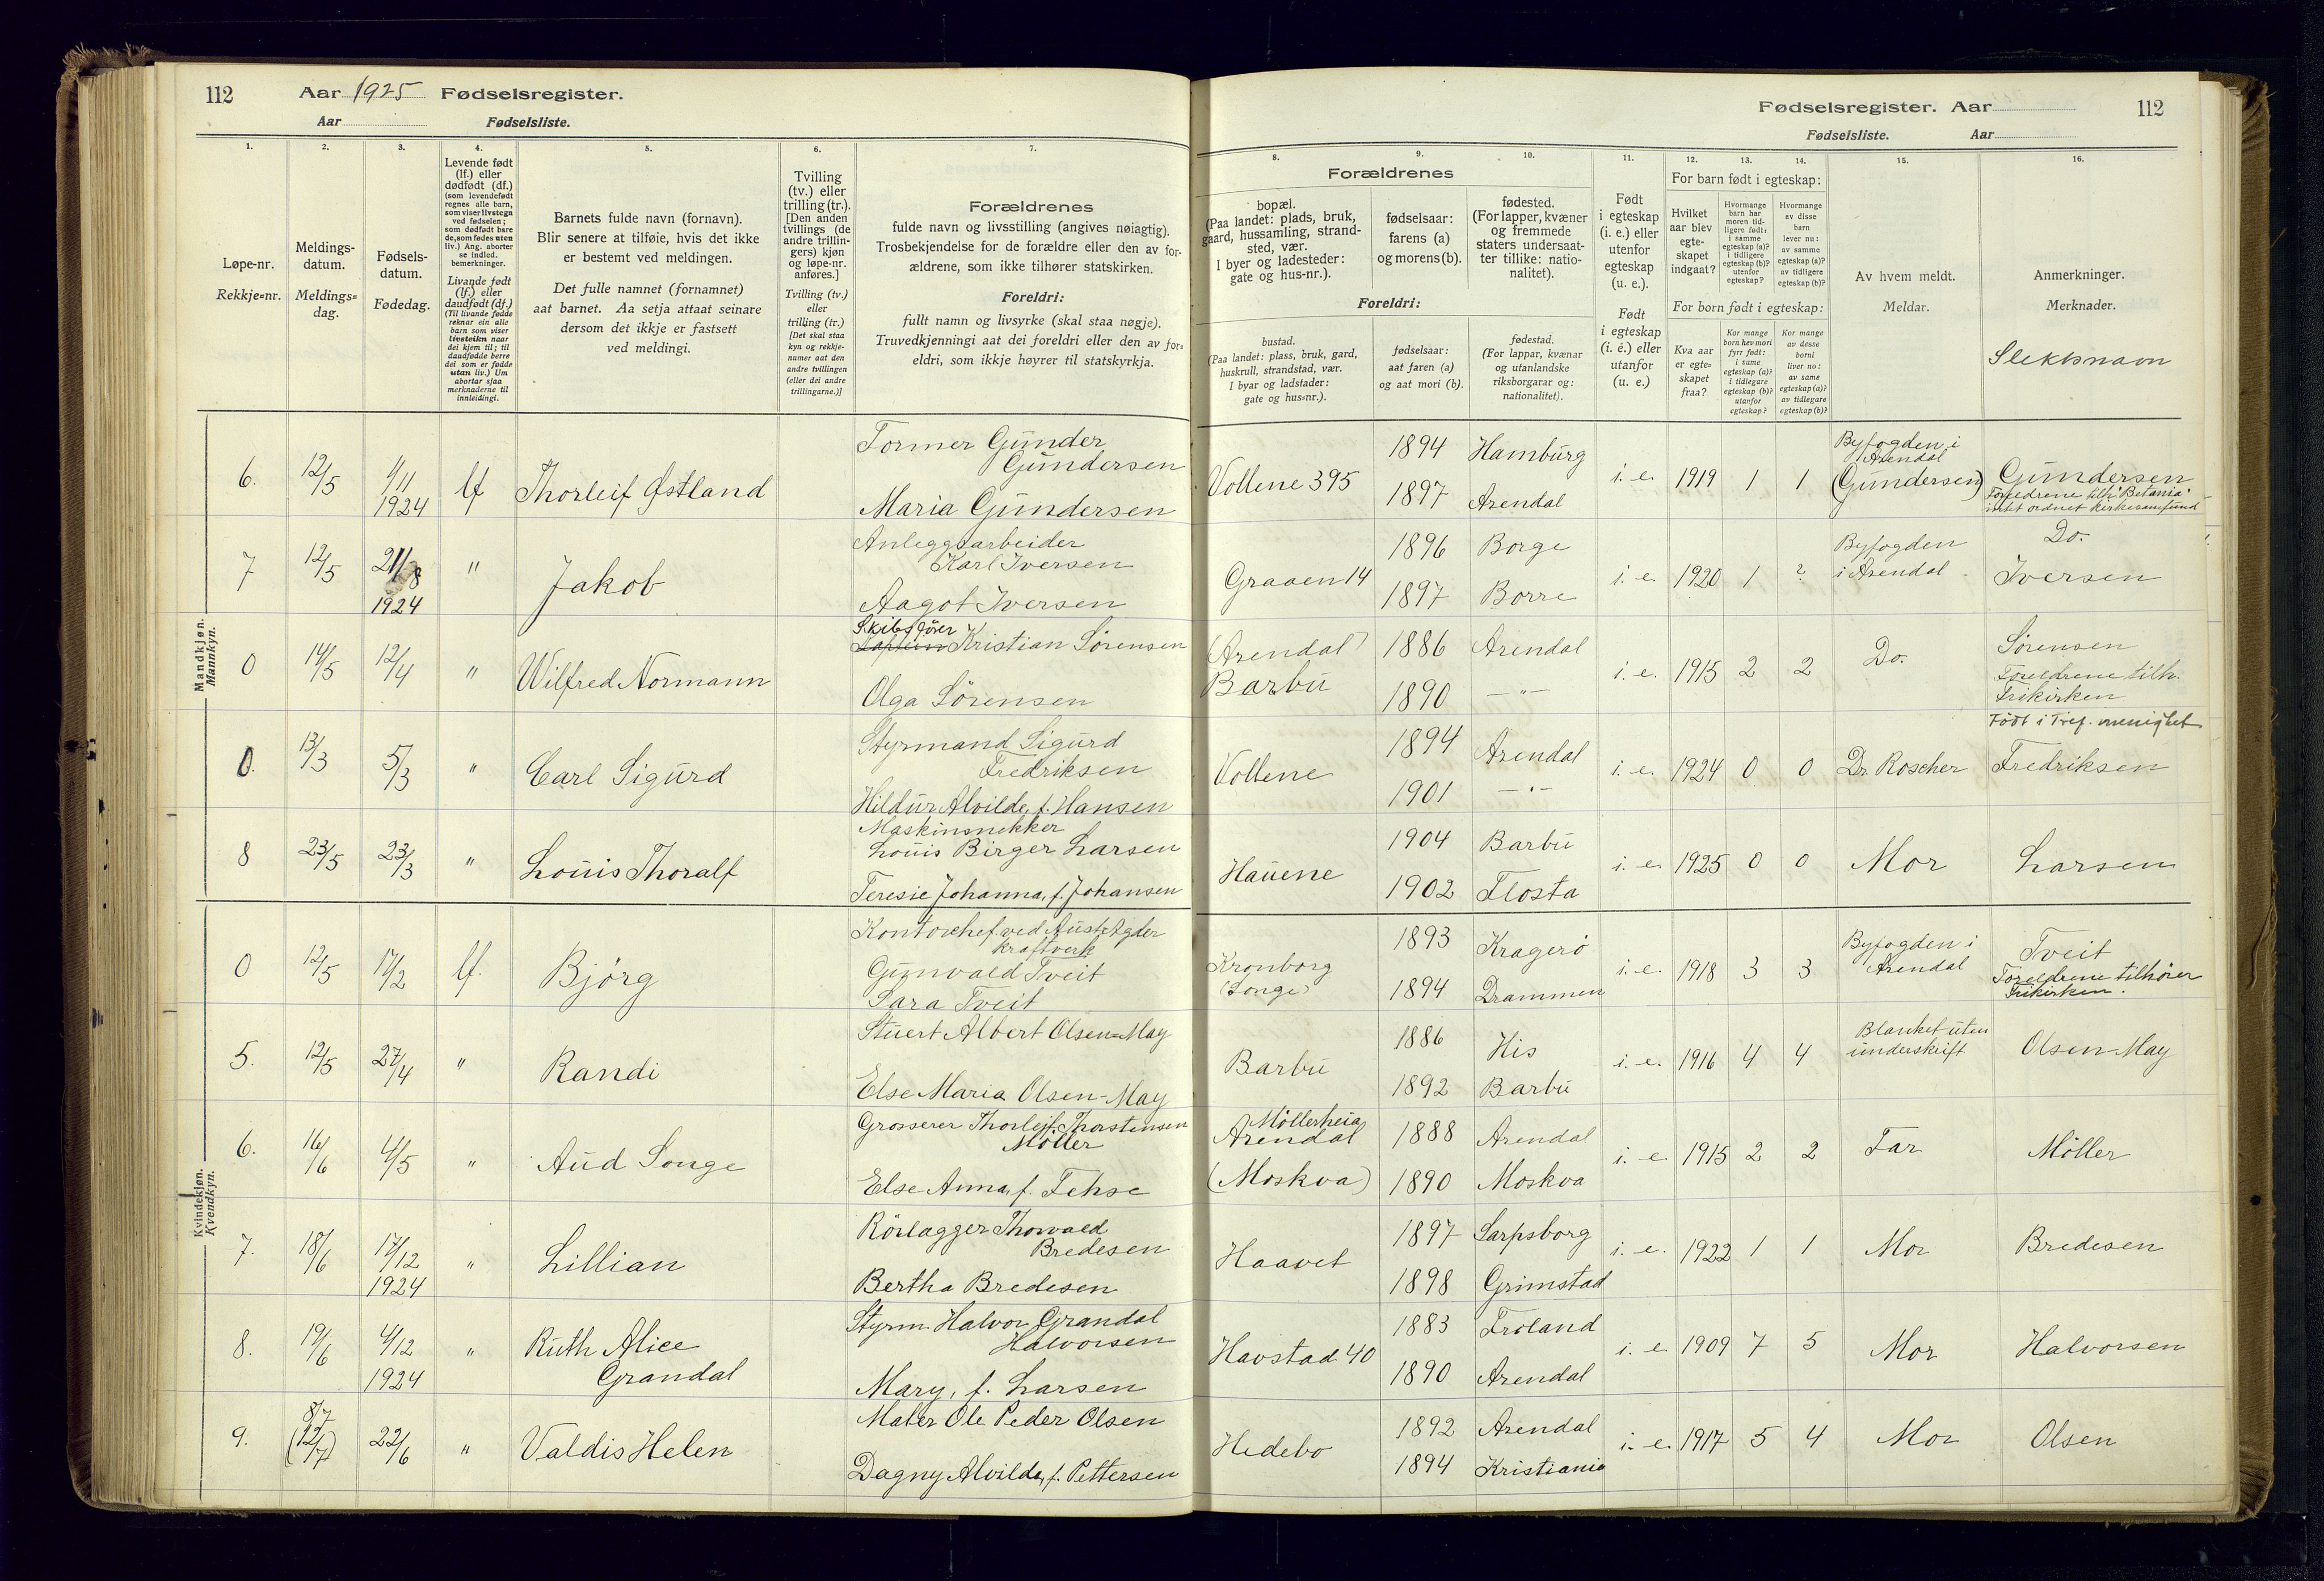 112 Aar 1925 Fødselsregister.
Aar Fødselsliste.
Fødselsregister. Aar 112
Fødselsliste. Aar
1. 2. 3. 4. 5. 6. 7. 8. 9. 10. 11. 12. 13. 14. 15. 16.
Løpe-nr.
Rekkje=nr.
Meldings-
datum.
Meldings=
dag.
Fødsels-
datum.
Fødedag.
Levende født
(lf.) eller
dødfødt (df.)
(som levendefødt
regnes alle barn,
som viser livstegn
ved fødselen;
som dødfødt bare
de, som fødes uten
liv.) Ang. aborter
se indled.
bemerkninger.
Livande født
(lf.) eller
daudfødt (df.)
(Til livande fødde
reknar ein alle
born som viser
livsteikn naar
dei kjem til; til
daudfødde berre
dei som er fødde
utan liv.) Um
abortar sjaa
merknaderne til
innleidingi.
Barnets fulde navn (fornavn).
Blir senere at tilføie, hvis det ikke
er bestemt ved meldingen.
Det fulle namnet (fornamnet)
aat barnet. Aa setja attaat seinare
dersom det ikkje er fastsett
ved meldingi.
Tvilling
(tv.) eller
trilling (tr.).
[Den anden
tvillings (de
andre trillin-
gers) kjøn
og løpe-nr.
anføres.]
Tvilling (tv.)
eller
trilling (tr.)
[Det skal staa
kyn og rekkje-
numer aat den
andre tvillingen
(eller dei andre
trillingarne.)]
Forældrenes
fulde navn og livsstilling (angives nøiagtig).
Trosbekjendelse for de forældre eller den av for-
ældrene, som ikke tilhører statskirken.
Foreldri:
fullt namn og livsyrke (skal staa nøgje).
Truvedkjenningi aat dei foreldri eller den av for=
eldri, som ikkje høyrer til statskyrkja.
Forældrenes
bopæl.
(Paa landet: plads, bruk,
gaard, hussamling, strand-
sted, vær.
I byer og ladesteder:
gate og hus-nr.).
fødselsaar:
farens (a)
og morens (b).
fødested.
(For lapper, kvæner
og fremmede
staters undersaat-
ter tillike: natio-
nalitet).
Foreldri:
bustad.
(Paa landet: plass, bruk, gard,
huskrull, strandstad, vær.
I byar og ladstader:
gate og hus=nr.).
fødselsaar:
aat faren (a)
og aat mori (b).
fødestad.
(For lappar, kvænar
og utanlandske
riksborgarar og:
nationalitet).
Født
i egteskap
(i. e.) eller
utenfor
egteskap
(u. e.).
Født
i egteskap
(i. e.) eller
utanfor
(u. e.)
For barn født i egteskap:
Hvilket
aar blev
egte-
skapet
indgaat?
Hvormange
barn har
moren tid-
ligere født:
i samme
egteskap (a)?
i tidligere
egteskap (b)?
utenfor
egteskap?
Hvormange
av disse
barn
lever nu:
av samme
egteskap (a)?
av tidligere
egteskap (b)?
For born født i egteskap:
Kva aar
er egte=
skapet
fraa?
Kor mange
born hev mori
fyrr født:
i same
egteskap (a)?
i tidlegare
egteskap (b)?
utanfor
egteskap?
Kor mange
av desse
borni
liver no:
av same
egteskap (a)?
av tidlegare
egteskap (b)?
Av hvem meldt.
Meldar.
Anmerkninger.
Merknader.
Slektsnavn
Mandkjøn.
Mannkyn.
6. 12/5 4/11 1924 lf Thorleif Østland
Former Gunder
Gundersen
Maria Gundersen
Vollene 395 1894 Hamburg
1897 Arendal
i. e. 1919 1 1
Byfogden i
Arendal
(Gundersen)
Gundersen
Foreldrene tilh. "Betania"
intet ordnet kirkesamfund
7 12/5 21/8 1924 " Jakob
Anleggsarbeider
Karl Iversen
Aagot Iversen
Graaen 14 1896 Borge
1897 Borre
i. e. 1920 1 ?
Byfogden
i Arendal.
Do.
Iversen
0 14/5 12/4 " Wilfred Normann
Skibsfører
Kaptein Kristian Sörensen
Olga Sörensen
(Arendal)
Barbu
1886 Arendal
1890 —"—
i. e. 1915 2 2 Do.
Sörensen
Foreldrene tilh.
Frikirken
0. 13/3 5/3 " Carl Sigurd
Styrmand Sigurd
Fredriksen
Hildur Alvilde, f. Hansen
Vollene 1894 Arendal
1901 —"—
i. e. 1924 0 0 Dr. Roscher
Födt i Tref. menighet
Fredriksen
8 23/5 23/3 " Louis Thoralf
Maskinsnekker
Louis Birger Larsen
Teresie Johanna, f. Johansen
Hauene 1904 Barbu
1902 Flosta
i. e. 1925 0 0 Mor Larsen
Kvindekjøn.
Kvendkyn.
0 12/5 17/2 lf. Björg
Kontorchef ved Aust-Agder
kraftverk
Gunvald Tveit
Sara Tveit
Kronborg
(Songe)
1893 Kragerö
1894 Drammen
i. e. 1918 3 3
Byfogden i
Arendal
Tveit
Foreldrene tilhörer
Frikirken.
5. 12/5 27/4 " Randi
Stuert Albert Olsen=May
Else Maria Olsen-May
Barbu 1886 His
1892 Barbu
i. e. 1916 4 4
Blanket uten
underskrift
Olsen-May
6. 16/6 4/5 " Aud Songe
Grosserer Thorleif Thorstensen
Möller
Else Anna, f. Fehse
Möllerheia
Arendal
(Moskva)
1888 Arendal
1890 Moskva
i. e. 1915 2 2 Far Möller
7. 18/6 17/12 1924 " Lillian
Rörlagger Thorvald
Bredesen
Bertha Bredesen
Haavet 1897 Sarpsborg
1898 Grimstad
i. e. 1922 1 1 Mor Bredesen
8. 19/6 4/12 1924 " Ruth Alice
Grandal
Styrm. Halvor Grandal
Halvorsen
Mary, f. Larsen
Havstad 40 1883 Froland
1890 Arendal
i. e. 1909 7 5 Mor Halvorsen
9. 8/7 (12/7) 22/6 " Valdis Helen
Maler Ole Peder Olsen
Dagny Alvilde, f. Pettersen
Hedebo 1892 Arendal
1894 Kristiania
i. e. 1917 5 4 Mor Olsen